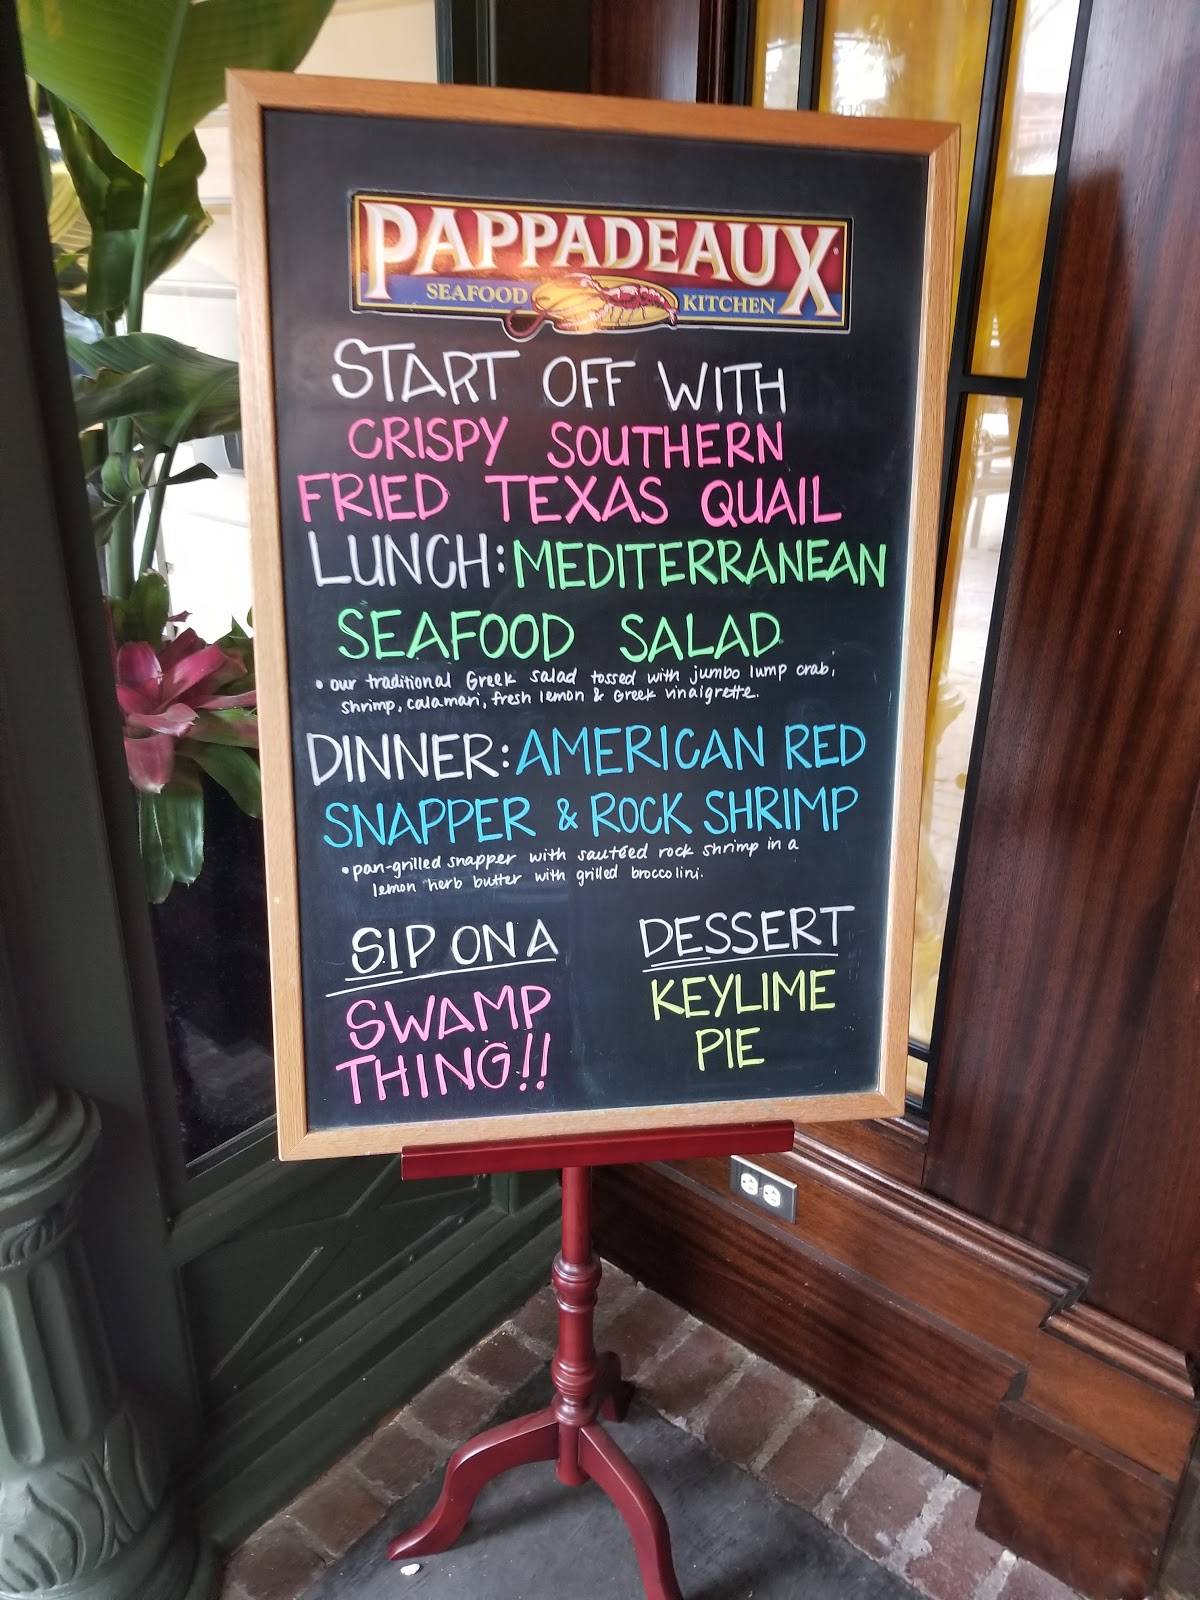 PAPPADEAUX
SEAFOOD KITCHEN
START OFF WITH
CRISPY SOUTHERN
FRIED TEXAS QUAIL
LUNCH: MEDITERRANEAN
SEAFOOD SALAD
• our traditional Greek salad tossed with jumbo lump crab,
shrimp, calamari, fresh lemon & Greek vinaigrette.
DINNER: AMERICAN RED
SNAPPER & ROCK SHRIMP
• pan-grilled snapper with sautéed rock shrimp in a
lemon herb butter with grilled broccolini.
SIP ON A
SWAMP
THING!!
DESSERT
KEYLIME
PIE